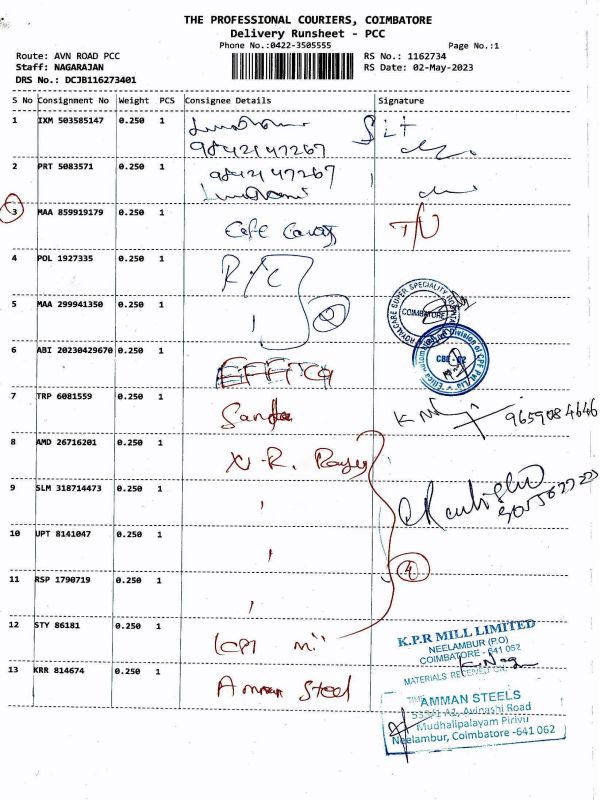 THE PROFESSIONAL COURIERS, COIMBATORE
Delivery Runsheet - PCC
Phone No.:0422-3505555
Page No.:1
Route: AVN ROAD PCC
RS No.: 1162734
Staff: NAGARAJAN
RS Date: 02-May-2023
DRS No.: DCJB116273401
S No Consignment No Weight PCS Consignee Details Signature
1 IXM 503585147 0.250 1
9842147267
2 PRT 5083571 0.250 1 9842147267
3 MAA 859919179 0.250 1
4 POL 1927335 0.250 1 R/C
5 MAA 299941350 0.250 1
ROYALCARE SUPER SPECIALITY
COIMBATORE
6 ABI 20230429670 0.250 1
7 TRP 6081559 0.250 1
9659084646
8 AMD 26716201 0.250 1
9 SLM 318714473 0.250 1
10 UPT 8141047 0.250 1
4
11 RSP 1790719 0.250 1
12 STY 86181 0.250 1
K.P.R MILL LIMITED
NEELAMBUR (P.O)
COIMBATORE - 641 062
MATERIALS RECEIVED
13 KRR 814674 0.250 1 Amman Steel
TIME
AMMAN STEELS
Avinashi Road
Mudhalipalayam Pirivu
Neelambur, Coimbatore -641 062